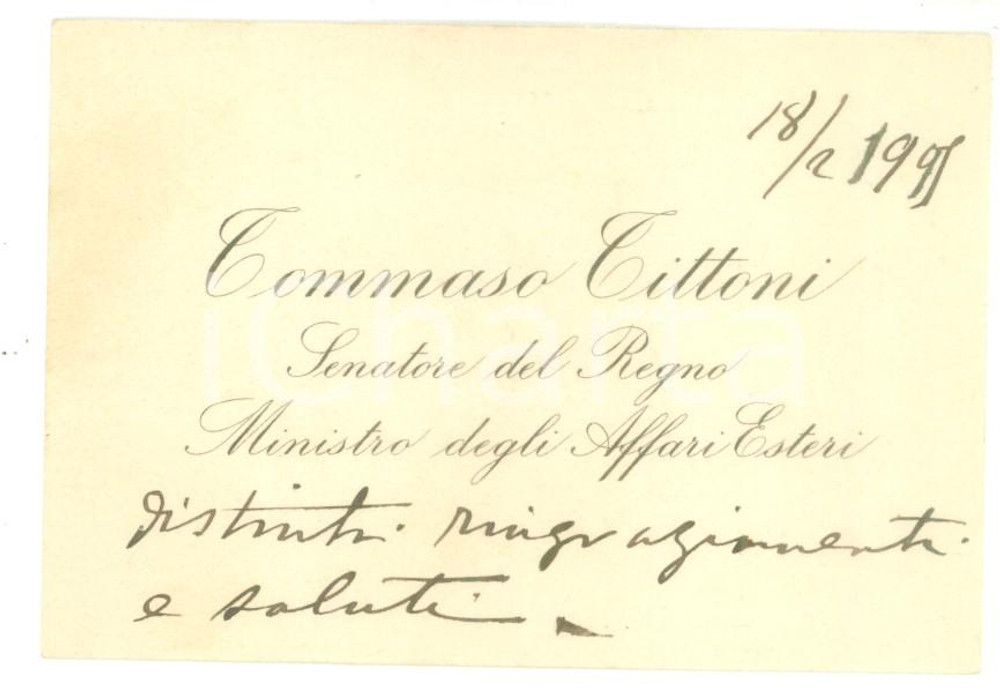 18/2 19
Tommaso Tittoni
Senatore del Regno
Ministro degli Affari Esteri
distinti ringraziamenti
e saluti
iCharta